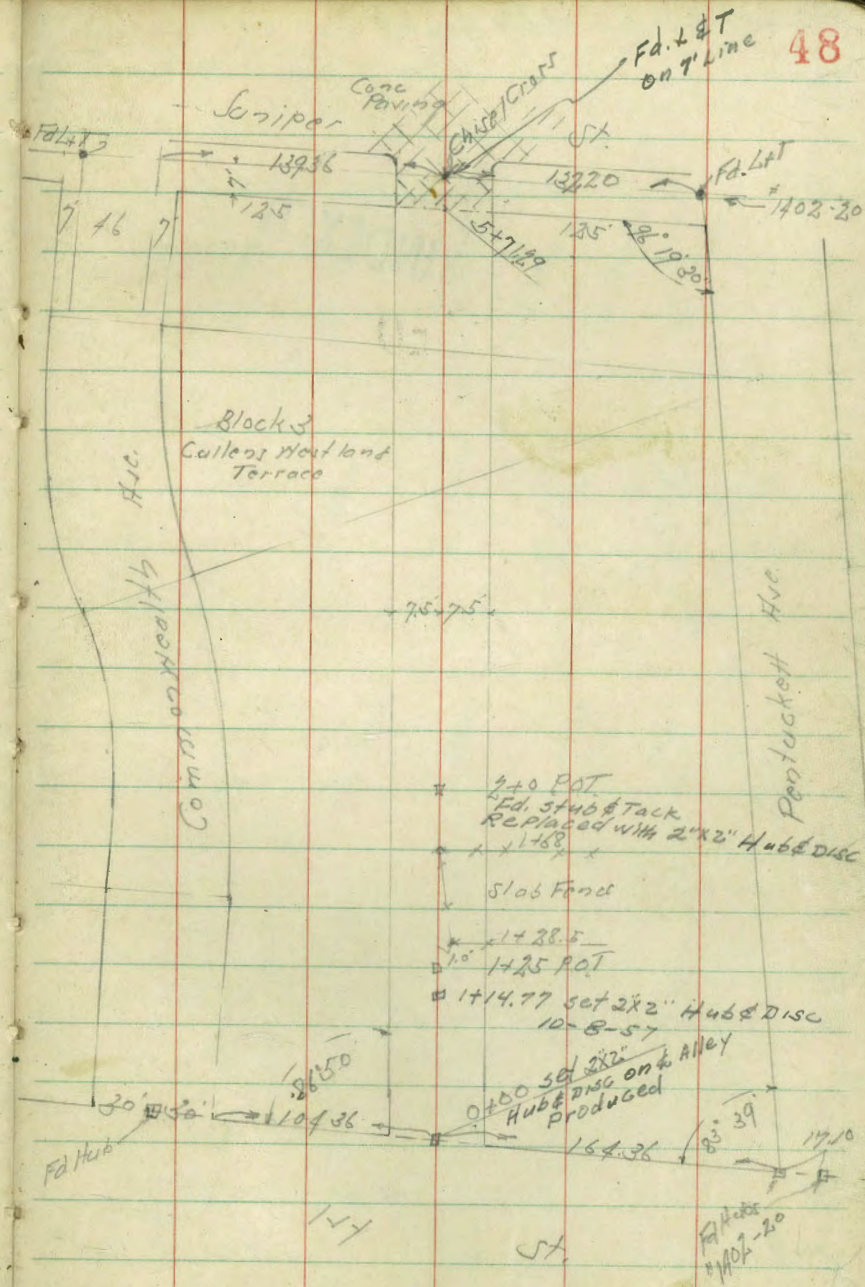 48
Fd. L & T
on 7' Line
Conc
Paving
Chisel Cross
Juniper
St.
Fd L+T
139.36
132.20
Fd. L+T
# 1402-20
7'
46
7'
7'
125
5+71.29
125'
19' 30"
Block 3
Cullens Westland
Terrace
Ave.
7.5' 7.5'
Pentuckett Ave.
Commonwealth
2+0 POT
Fd. Stub & Tack
Replaced with 2"x2" Hub & Disc
1+68
Slab Fence
1+28.5
1.0'
1+25 POT
1+14.77 set 2"x2" Hub & Disc
10-8-57
86° 50'
0+00 set 2"x2"
Hub & Disc on ℄ Alley
Produced
30' 30'
104.36
164.36
83° 39'
17.10
Fd Hub
Fd Hubs
# 1402-20
Ivy
St.